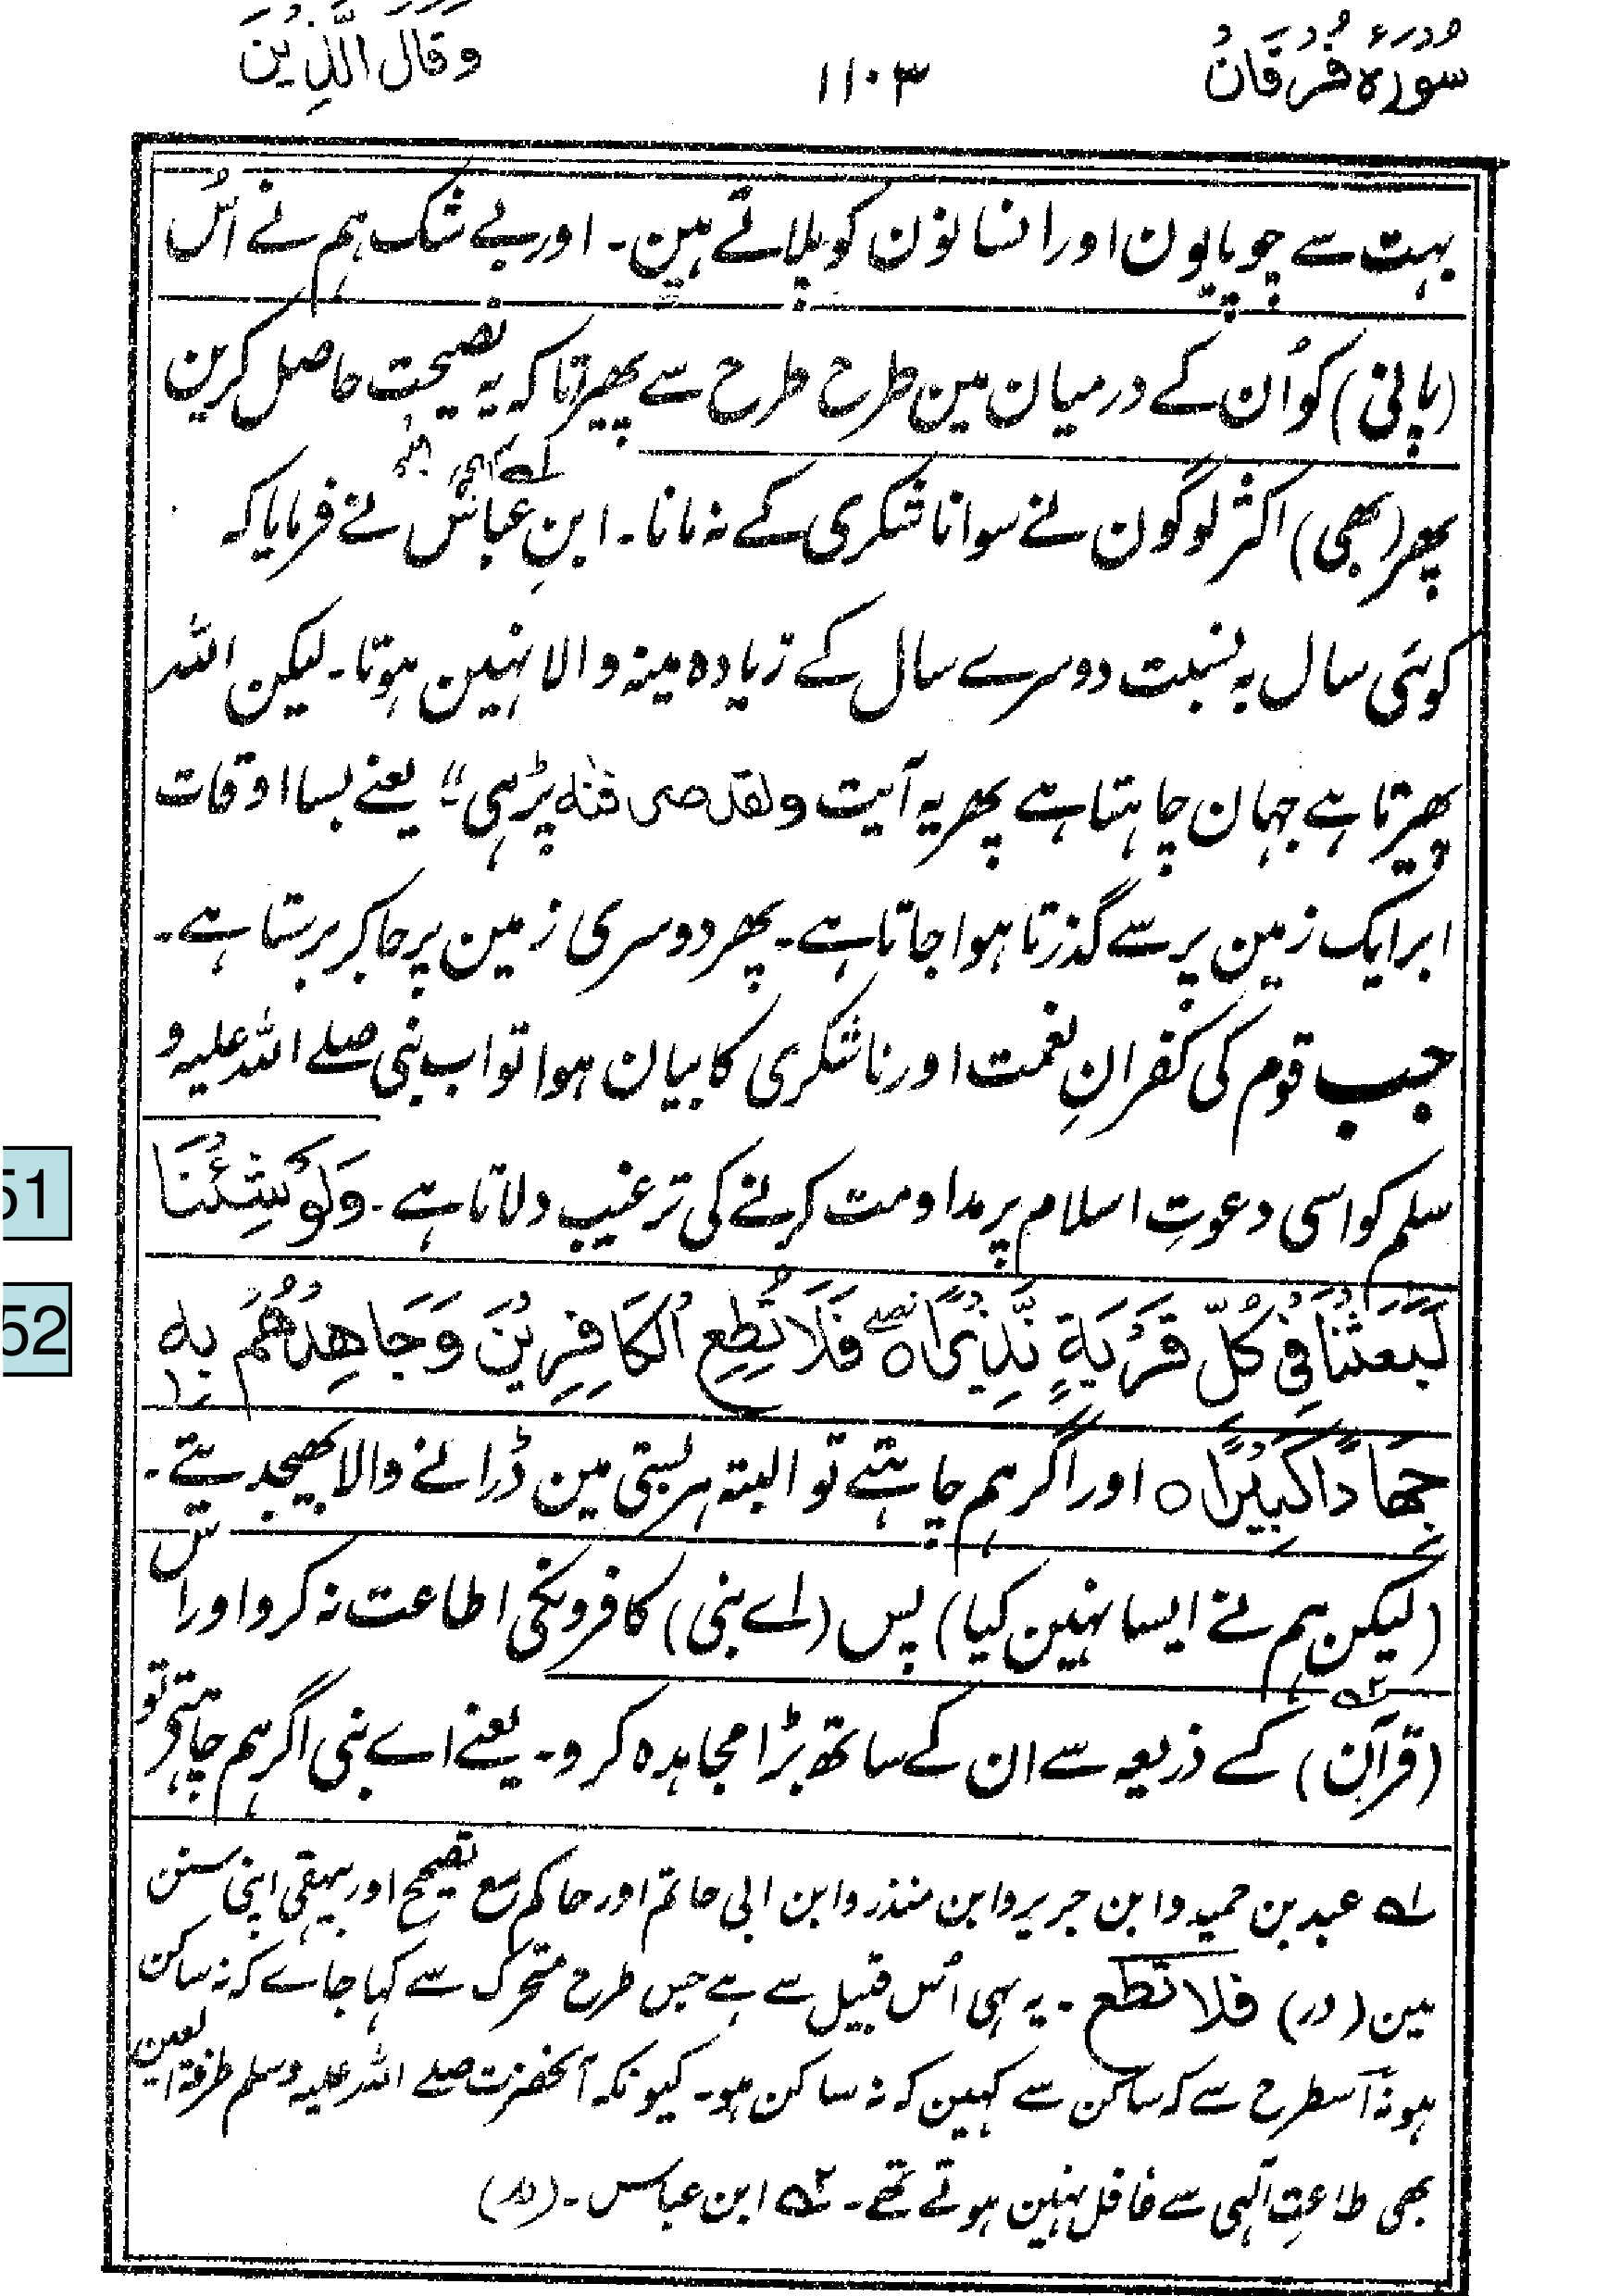 سُوْرَۂ فُرْقَان ۱۱۰۳ وَقَالَ الَّذِيْنَ
بہت سے چوپایون اور انسانون کو پلاتے ہین۔ اور بے شک ہم نے اُس
(پانی) کو اُن کے درمیان مین طرح طرح سے پھیرا تاکہ یہ نصیحت حاصل کرین
پھر (بھی) اکثر لوگون نے سوا ناشکری کے نہ مانا۔ ابنِ عباسؓ نے فرمایا کہ
کوئی سال بہ نسبت دوسرے سال کے زیادہ مینہ والا نہین ہوتا۔ لیکن اللہ
پھیرتا ہے جہان چاہتا ہے پھر یہ آیت ولقد صرفنٰه پڑہی"۔ یعنے بسا اوقات
ابر ایک زمین پر سے گذرتا ہوا جاتا ہے۔ پھر دوسری زمین پر جاکر برستا ہے۔
جب قوم کی کفرانِ نعمت اور ناشکری کا بیان ہوا تو اب نبی صلے اللہ علیہ و
51
سلم کو اسی دعوتِ اسلام پر مداومت کرنے کی ترغیب دلاتا ہے۔ وَلَوْ شِئْنَا
52
لَبَعَثْنَا فِيْ كُلِّ قَرْيَةٍ نَّذِيْرًا ۝ فَلَا تُطِعِ الْكَافِرِيْنَ وَجَاهِدْهُمْ بِهٖ
جِهَادًا كَبِيْرًا ۝ اور اگر ہم چاہتے تو البتہ ہر بستی مین ڈرانے والا بھیجدیتے۔
(لیکن ہم نے ایسا نہین کیا) پس (اے نبی) کافرونکی اطاعت نہ کرو اور اس
(قرآن) کے ذریعہ سے ان کے ساتھ بڑا مجاہدہ کرو۔ یعنے اے نبی اگر ہم چاہتے تو
۱ عبد بن حمید وابن جریر وابن منذر وابن ابی حاتم اور حاکم مع تصحیح اور بیہقی اپنی سنن
مین (در) فلا تطع۔ یہ بہی اُس قبیل سے ہے جس طرح متحرک سے کہا جاے کہ نہ ساکن
ہو نہ اسطرح سے کہ ساکن سے کہین کہ نہ ساکن ہو۔ کیونکہ آنحضرت صلے اللہ علیہ وسلم طرفۃ العین
بھی طاعتِ الٰہی سے غافل نہین ہوتے تھے۔ ۲ ابن عباس۔ (در)